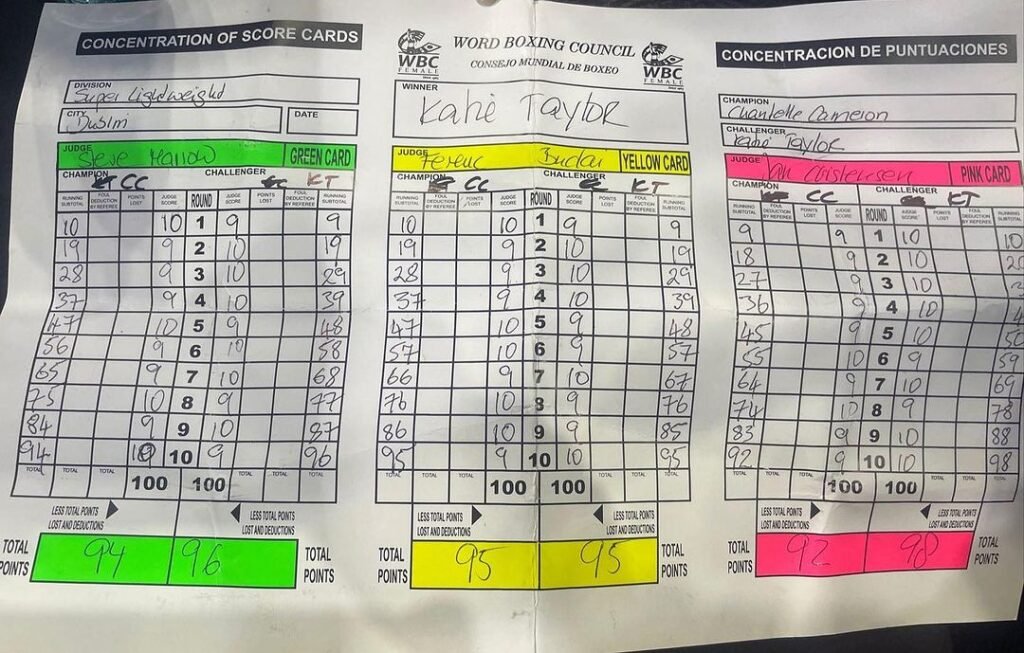 CONCENTRATION OF SCORE CARDS
DIVISION
Super Lightweight
CITY
Dublin
DATE
WORD BOXING COUNCIL
CONSEJO MUNDIAL DE BOXEO
WBC
FEMALE
WBC
FEMALE
WINNER
Katie Taylor
CONCENTRACION DE PUNTUACIONES
CHAMPION
Chantelle Cameron
CHALLENGER
Katie Taylor
JUDGE
Steve GREEN CARD
CHAMPION CHALLENGER
CC KT
RUNNING SUBTOTAL FOUL DEDUCTION BY REFEREE POINTS LOST JUDGE SCORE ROUND JUDGE SCORE POINTS LOST FOUL DEDUCTION BY REFEREE RUNNING SUBTOTAL
10 10 1 9 9
19 9 2 10 19
28 9 3 10 29
37 9 4 10 39
47 10 5 9 48
56 9 6 10 58
65 9 7 10 68
75 10 8 9 77
84 9 9 10 87
94 10 10 9 96
TOTAL TOTAL TOTAL 100 100 TOTAL TOTAL TOTAL
LESS TOTAL POINTS LOST AND DEDUCTIONS LESS TOTAL POINTS LOST AND DEDUCTIONS
TOTAL POINTS 94 96 TOTAL POINTS
JUDGE
Ferenc Budai YELLOW CARD
CHAMPION CHALLENGER
CC KT
RUNNING SUBTOTAL FOUL DEDUCTION BY REFEREE POINTS LOST JUDGE SCORE ROUND JUDGE SCORE POINTS LOST FOUL DEDUCTION BY REFEREE RUNNING SUBTOTAL
10 10 1 9 9
19 9 2 10 19
28 9 3 10 29
37 9 4 10 39
47 10 5 9 48
57 10 6 9 57
66 9 7 10 67
76 10 8 9 76
86 10 9 9 85
95 9 10 10 95
TOTAL TOTAL TOTAL 100 100 TOTAL TOTAL TOTAL
LESS TOTAL POINTS LOST AND DEDUCTIONS LESS TOTAL POINTS LOST AND DEDUCTIONS
TOTAL POINTS 95 95 TOTAL POINTS
JUDGE
PINK CARD
CHAMPION CHALLENGER
CC KT
RUNNING SUBTOTAL FOUL DEDUCTION BY REFEREE POINTS LOST JUDGE SCORE ROUND JUDGE SCORE POINTS LOST FOUL DEDUCTION BY REFEREE RUNNING SUBTOTAL
9 9 1 10 10
18 9 2 10
27 9 3 10
36 9 4 10
45 9 5 10 50
55 10 6 9 59
64 9 7 10 69
74 10 8 9 78
83 9 9 10 88
92 9 10 10 98
TOTAL TOTAL TOTAL 100 100 TOTAL TOTAL TOTAL
LESS TOTAL POINTS LOST AND DEDUCTIONS LESS TOTAL POINTS LOST AND DEDUCTIONS
TOTAL POINTS 92 98 TOTAL POINTS